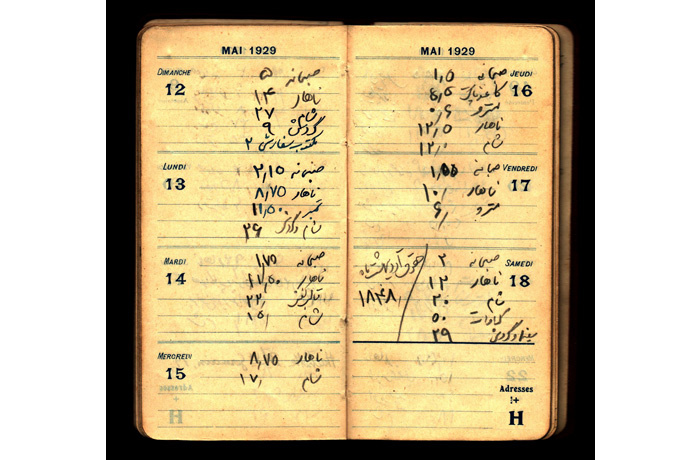 MAI 1929
DIMANCHE
12
صبحانه ۵
ناهار ۱۴
شام ۲۷
گردش ۹
مکتوب سفارشی ۲
LUNDI
13
صبحانه ۲٫۱۵
ناهار ۸٫۷۵
تمبر ۱۱٫۵۰
شام و گردش ۲۶
MARDI
14
صبحانه ۱٫۷۵
ناهار ۱۱٫۵۰
۲۲٫
شام ۱۵٫
MERCREDI
15
ناهار ۸٫۷۵
شام ۱۷٫
MAI 1929
JEUDI
16
صبحانه ۱٫۵
کاغذ پاکت ۴٫۵
مترو ۰٫۶
ناهار ۱۲٫۵
شام ۱۲٫۰
VENDREDI
17
صبحانه ۱٫۵۵
ناهار ۱۰٫
مترو ۶٫
SAMEDI
18
صبحانه ۲
ناهار ۱۲
شام ۲۰
۵۰
سینما و گردش ۲۹
حقوق اردیبهشت ماه
۱۸۴۸٫
22
Adresses
H
Adresses
H